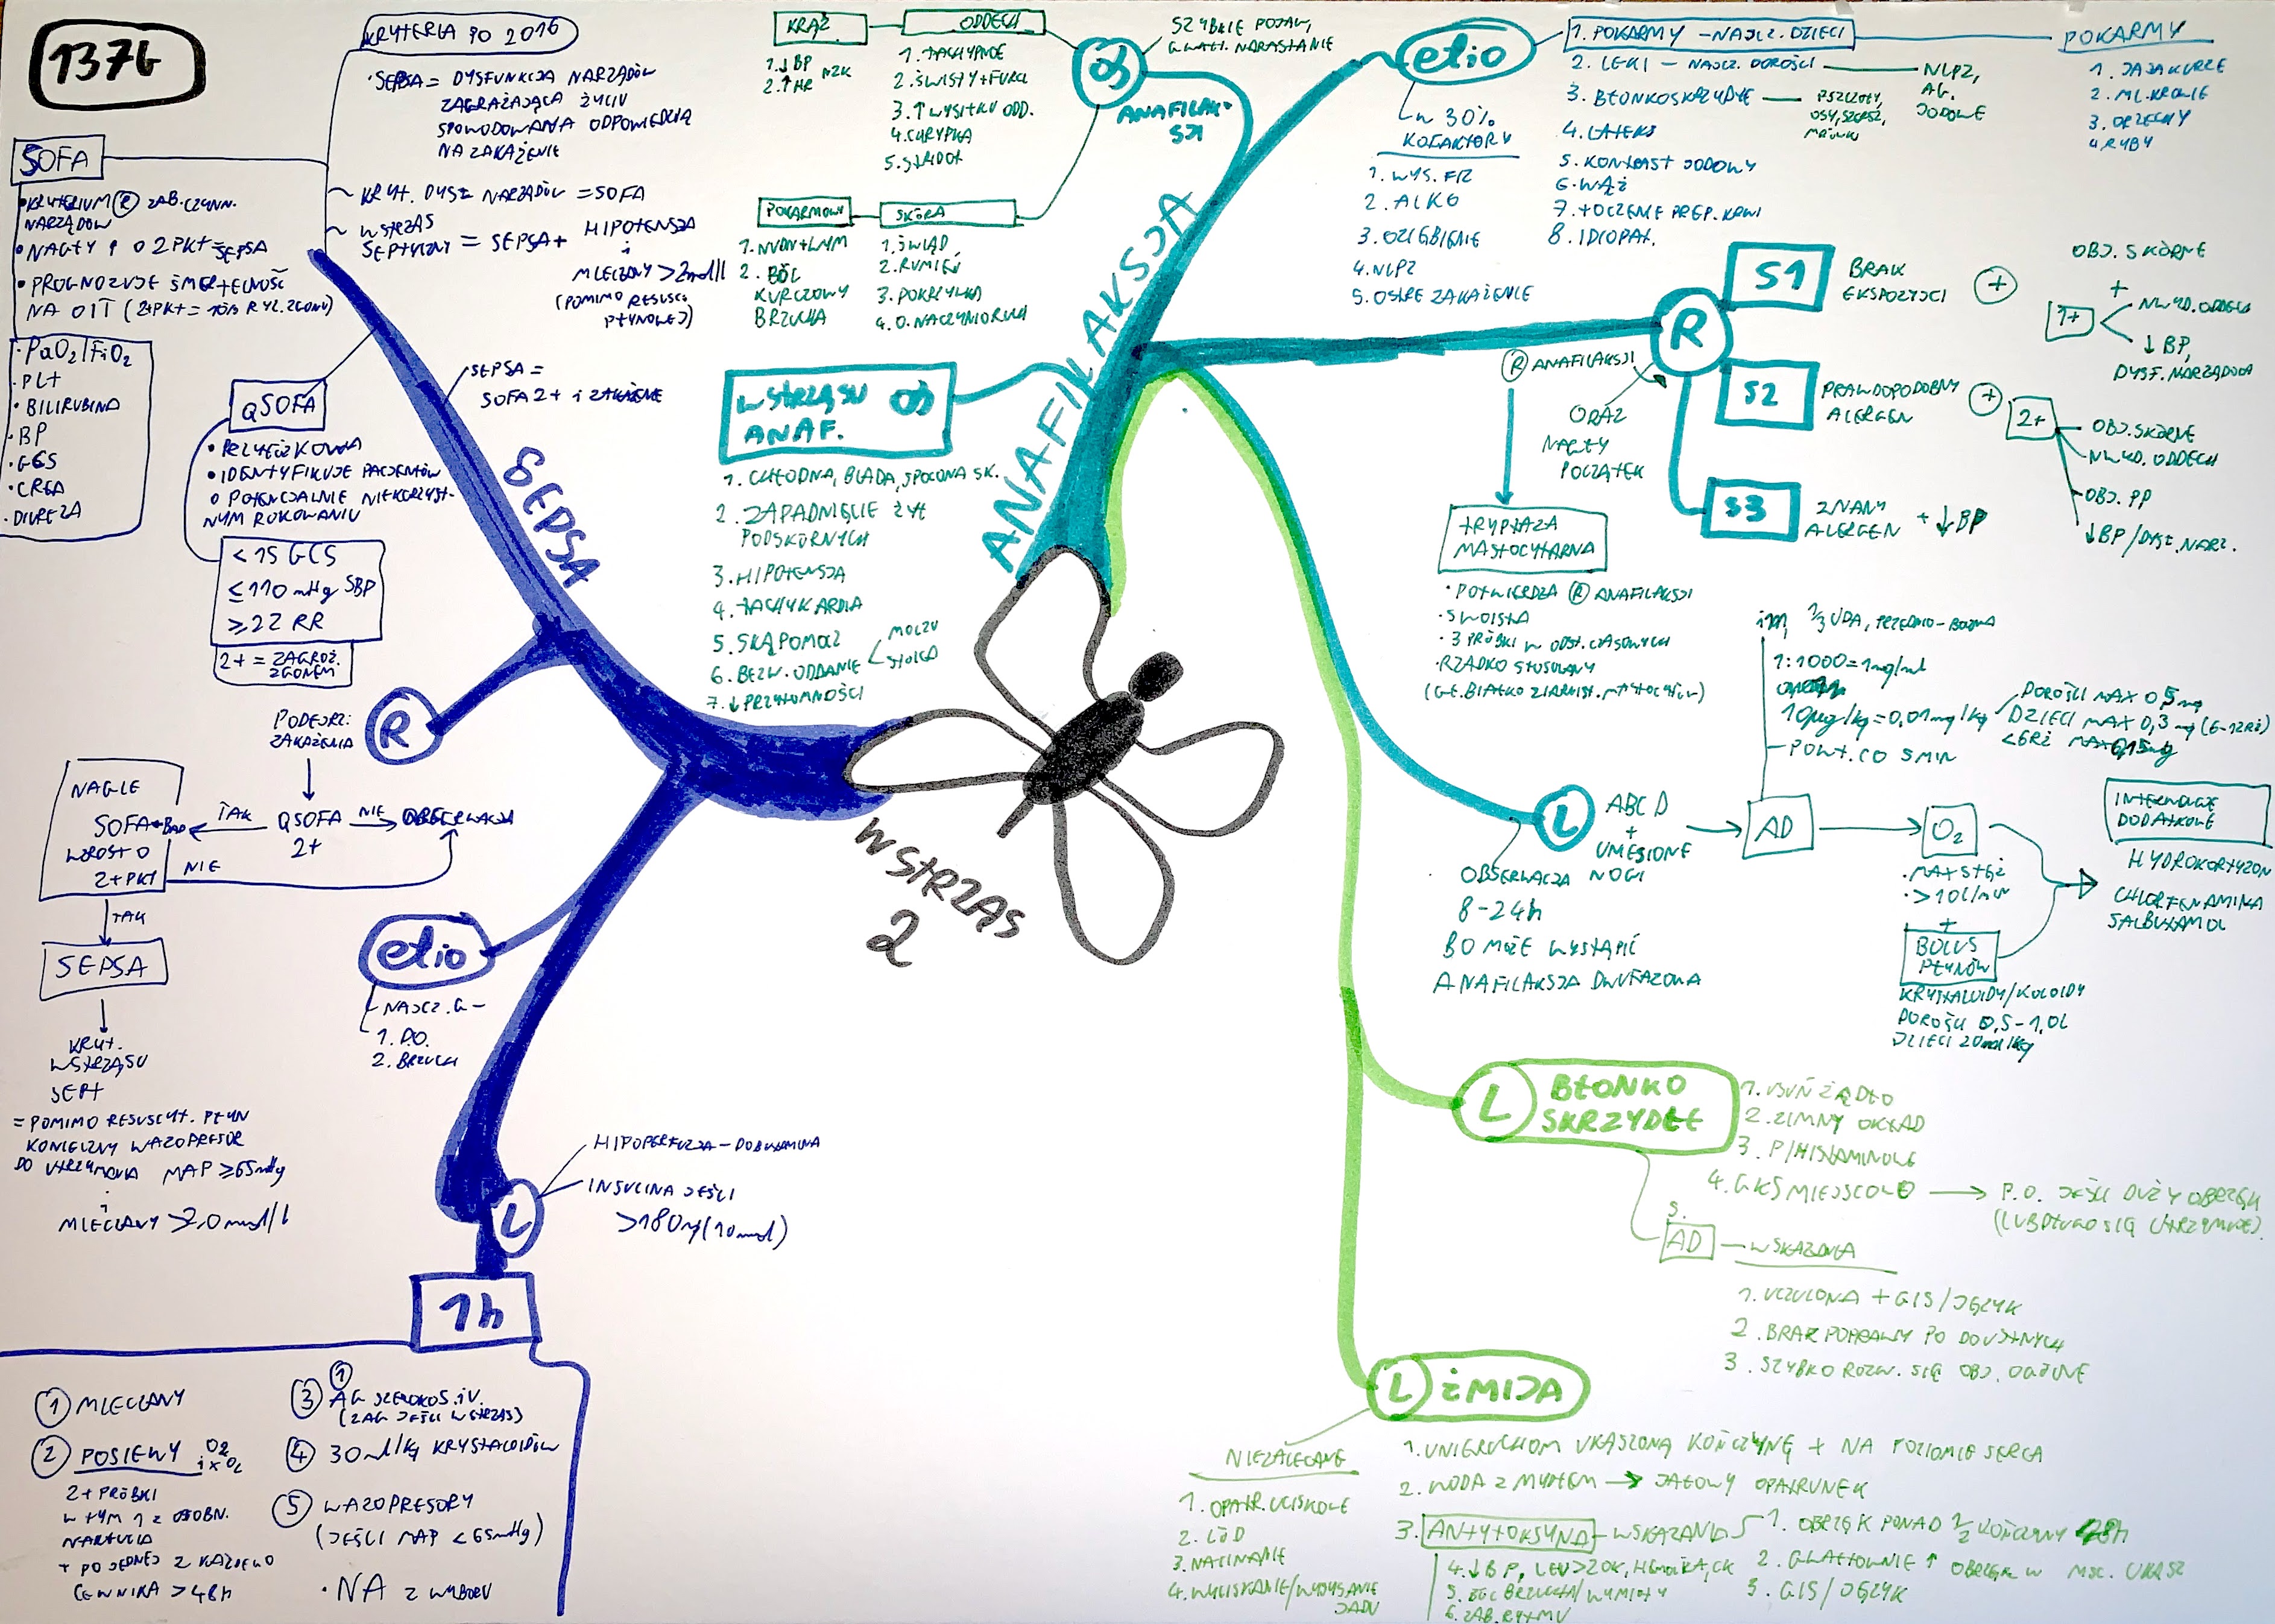 137b
KRYTERIA PO 2016
• SEPSA = DYSFUNKCJA NARZĄDÓW
ZAGRAŻAJĄCA ŻYCIU
SPOWODOWANA ODPOWIEDZIĄ
NA ZAKAŻENIE
KRYT. DYSF. NARZĄDÓW = SOFA
WSTRZĄS
SEPTYCZNY = SEPSA + HIPOTENSJA
i
MLECZANY > 2 mol/l
(POMIMO RESUSC.
PŁYNOWEJ)
SOFA
• KRYTERIUM (R) ZAB. CZYNN.
NARZĄDÓW
• NAGŁY ↑ O 2 PKT = SEPSA
• PROGNOZUJE ŚMIERTELNOŚĆ
NA OIT (2+PKT = 10% RYZ. ZGONU)
• PaO2/FiO2
• PLT
• BILIRUBINA
• BP
• GCS
• CREA
• DIUREZA
QSOFA
• PRZYŁÓŻKOWA
• IDENTYFIKUJE PACJENTÓW
O POTENCJALNIE NIEKORZYST-
NYM ROKOWANIU
< 15 GCS
≤ 110 mHg SBP
≥ 22 RR
2+ = ZAGROŻ.
ZGONEM
SEPSA =
SOFA 2+ i ZAKAŻENIE
SEPSA
R
PODEJRZ.
ZAKAŻENIA
QSOFA
2+
TAK
NIE
OBSERWACJA
NAGLE
SOFA
WZROST O
2+PKT
NIE
TAK
SEPSA
KRYT.
WSTRZĄSU
SEPT
= POMIMO RESUSCYT. PŁYN
KONIECZNY WAZOPRESOR
DO UTRZYMANIA MAP ≥65mHg
i
MLECZANY >2,0 mmol/l
etio
NAJCZ. G-
1. D.O.
2. BRZUCH
L
HIPOPERFUZJA - DOBUTAMINA
INSULINA JEŚLI
>180 mg (10 mmol)
1h
1 MLECZANY
2 POSIEWY O2 i x O2
2+ PRÓBKI
W TYM 1 Z OSOBN.
NAKŁUCIA
+ PO JEDNEJ Z KAŻDEGO
CEWNIKA > 48h
3 1 AG SZEROKOS. IV.
(2AG JEŚLI WSTRZĄS)
4 30 ml/kg KRYSTALOIDÓW
5 WAZOPRESORY
(JEŚLI MAP < 65mHg)
• NA Z WYBORU
WSTRZĄS
2
ANAFILAKSJA
OJ
ANAFILAK-
SJI
SZYBKIE POJAW,
GWAŁT. NARASTANIE
KRĄŻ
1. ↓ BP
2. ↑ HR NZK
ODDECH
1. TACHYPNOE
2. ŚWISTY + FURCZ
3. ↑ WYSIŁKU ODD.
4. CHRYPKA
5. STRIDOR
POKARMOWY
1. NUDN + WYM
2. BÓL
KURCZOWY
BRZUCHA
SKÓRA
1. ŚWIĄD
2. RUMIEŃ
3. POKRZYWKA
4. O. NACZYNIORUCH
WSTRZĄSU OJ
ANAF.
1. CHŁODNA, BLADA, SPOCONA SK.
2. ZAPADNIĘCIE ŻYŁ
PODSKÓRNYCH
3. HIPOTENSJA
4. TACHYKARDIA
5. SKĄPOMOCZ
6. BEZW. ODDANIE MOCZU
STOLCA
7. ↓ PRZYTOMNOŚCI
etio
w 30%
KOFAKTORY
1. WYS. FIZ
2. ALKO
3. OZIĘBIENIE
4. NLPZ
5. OSTRE ZAKAŻENIE
1. POKARMY - NAJCZ. DZIECI
2. LEKI - NAJCZ. DOROŚLI
NLPZ,
AG.
JODOWE
3. BŁONKOSKRZYDŁE
PSZCZOŁY,
OSY, SZERSZ,
MRÓWKI
4. LATEKS
5. KONTRAST JODOWY
6. WĄŻ
7. TOCZENIE PREP. KRWI
8. IDIOPAT.
POKARMY
1. JAJA KURZE
2. ML. KROWIE
3. ORZECHY
4 RYBY
R
S1
BRAK
EKSPOZYCJI
+
OBJ. SKÓRNE
+
1+
NIEWYD. ODDECH
↓ BP,
DYSF. NARZĄDOWA
S2
PRAWDOPODOBNY
ALERGEN
+
2+
OBJ. SKÓRNE
NIEWYD. ODDECH
OBJ. PP
↓BP / DYSF. NARZ.
S3
ZNANY
ALERGEN + ↓BP
(R) ANAFILAKSJI
ORAZ
NAGŁY
POCZĄTEK
TRYPTAZA
MASTOCYTARNA
• POTWIERDZA (R) ANAFILAKSJI
• SWOISTA
• 3 PRÓBKI W ODST. CZASOWYCH
• RZADKO STOSOWANY
(GŁ. BIAŁKO ZIARNIST. MASTOCYTÓW)
im, 1/3 UDA, PRZEDNIO-BOCZNA
1:1000 = 1mg/ml
10µg/kg = 0,01mg/kg
DOROŚLI MAX 0,5 mg
DZIECI MAX 0,3 mg (6-12RŻ)
<6RŻ MAX 0,15mg
POWT. CO 5 MIN
L
ABCD
+
UNIESIONE
NOGI
AD
O2
• MAX STĘŻ
• >10L/min
+
BOLUS
PŁYNÓW
KRYSTALOIDY/KOLOIDY
DOROŚLI 0,5-1,0L
DZIECI 20ml/kg
INTERWENCJE
DODATKOWE
HYDROKORTYZON
CHLORFENAMINA
SALBUTAMOL
OBSERWACJA
8-24h
BO MOŻE WYSTĄPIĆ
ANAFILAKSJA DWUFAZOWA
L BŁONKO
SKRZYDŁE
1. USUŃ ŻĄDŁO
2. ZIMNY OKŁAD
3. P/HISTAMINOWE
4. GKS MIEJSCOWO → P.O. JEŚLI DUŻY OBRZĘK
(LUB DŁUGO SIĘ UTRZYMUJE).
5.
AD - WSKAZANIA
1. UCZULONA + GIS/JĘZYK
2. BRAK POPRAWY PO DOUSTNYCH
3. SZYBKO ROZW. SIĘ OBJ. OGÓLNE
L ŻMIJA
NIEZALECANE
1. OPATR. UCISKOWE
2. LÓD
3. NACINANIE
4. WYCISKANIE/WYSYSANIE
JADU
1. UNIERUCHOM UKĄSZONĄ KOŃCZYNĘ + NA POZIOMIE SERCA
2. WODA Z MYDŁEM → JAŁOWY OPATRUNEK
3. ANTYTOKSYNA - WSKAZANIA
1. OBRZĘK PONAD 1/2 KOŃCZYNY 48h
2. GWAŁTOWNIE ↑ OBRZĘK W MSC. UKĄSZ
3. GIS/JĘZYK
4. ↓BP, LEU>20K, HEMOLIZA, CK
5. BÓL BRZUCHA/WYMIOTY
6. ZAB. RYTMU